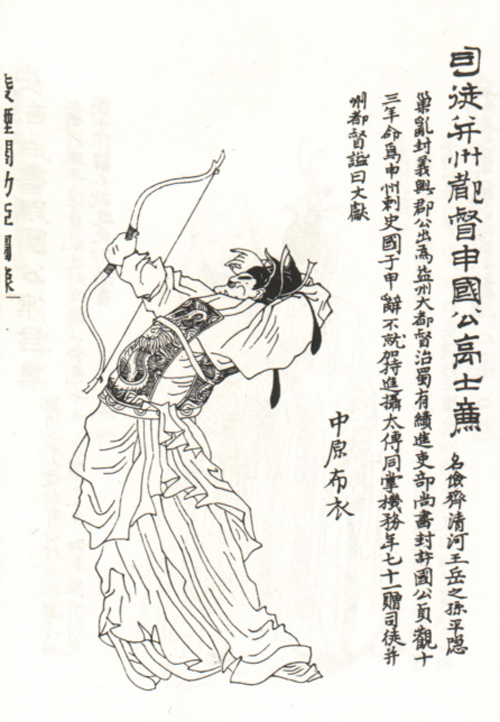 司徒并州都督申國公高士廉 名儉齊清河王岳之孫平隱
巢亂封義興郡公出為益州大都督治蜀有績進吏部尚書封許國公貞觀十
三年命為申州刺史國于申辭不就持進攝太傅同掌機務年七十一贈司徒并
州都督謚曰文獻
中原布衣
凌煙閣功臣圖像